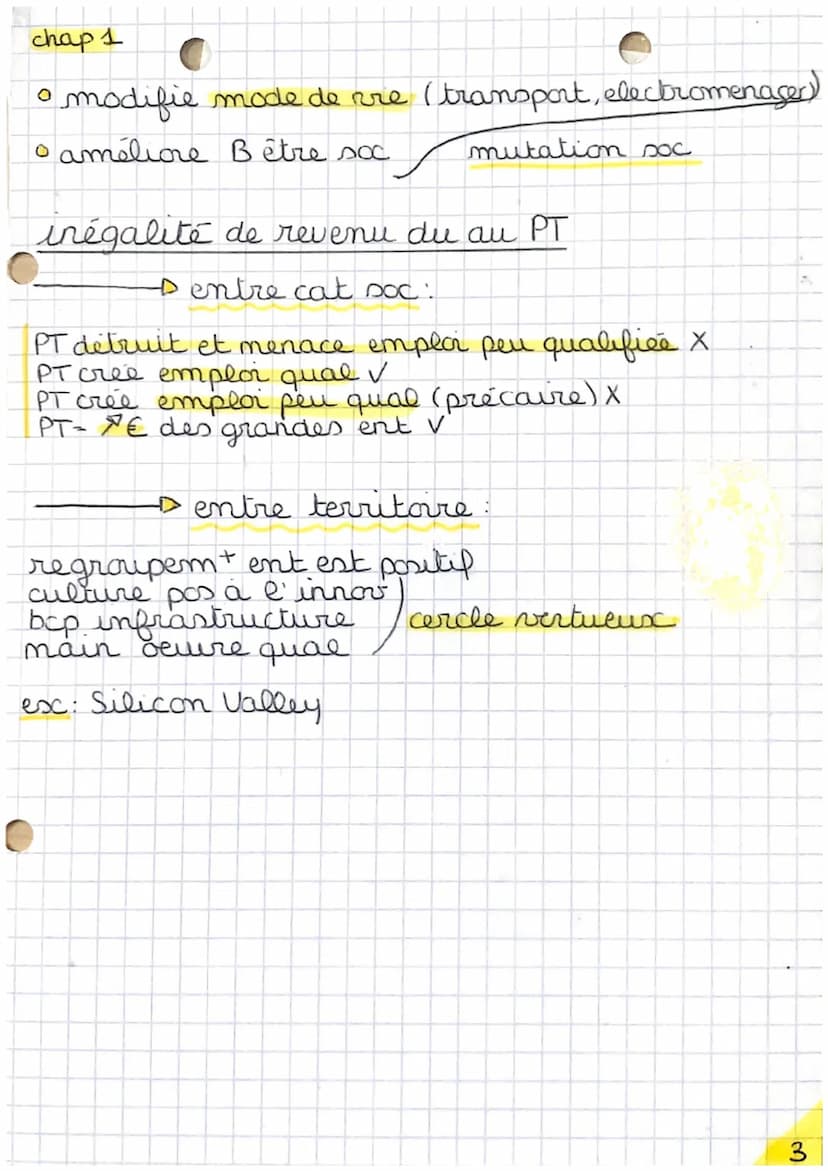 chap 1
• modifie mode de vie (transport, electromenager)
• améliore B être soc
mutation soc
inégalité de revenu du au PT
→ entre cat soc :
PT détruit et menace emploi peu qualifiée X
PT crée emploi qual √
PT crée emploi peu qual (précaire) X
PT = ↗€ des grandes ent √
→ entre territoire :
regroupem⁺ ent est positif
culture pos à l'innov
bcp infrastructure
cercle vertueux
main oeuvre qual
ex : Silicon Valley
3